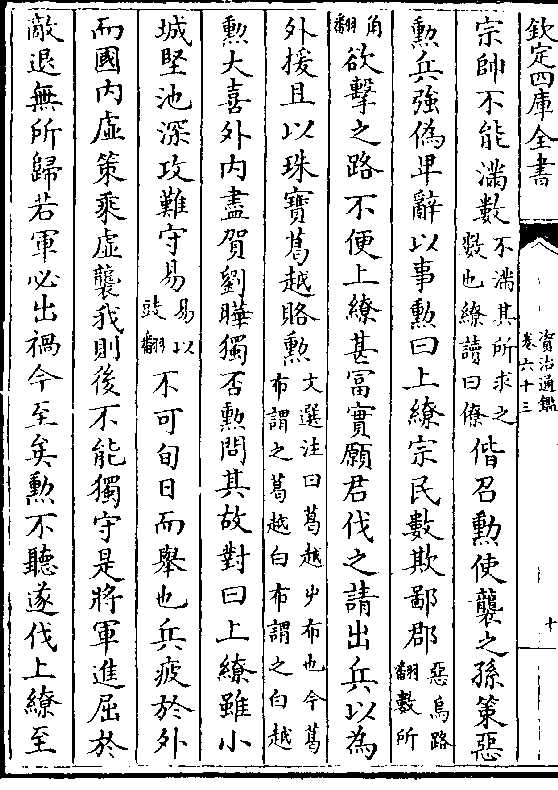 欽定四庫全書
資治通鑑
卷六十三
十
宗帥不能滿數不滿其所求之數也繚讀曰僚偕召勲使襲之孫策惡
勲兵強偽卑辭以事勲曰上繚宗民數欺鄙郡惡烏路翻數所
角翻欲擊之路不便上繚甚富實願君伐之請出兵以為
外援且以珠寶葛越賂勲文選注曰葛越屮布也今葛布謂之葛越白布謂之白越
勲大喜外内盡賀劉曄獨否勲問其故對曰上繚雖小
城堅池深攻難守易易以豉翻不可旬日而舉也兵疲於外
而國内虛策乘虛襲我則後不能獨守是將軍進屈於
敵退無所歸若軍必出禍今至矣勲不聽遂伐上繚至